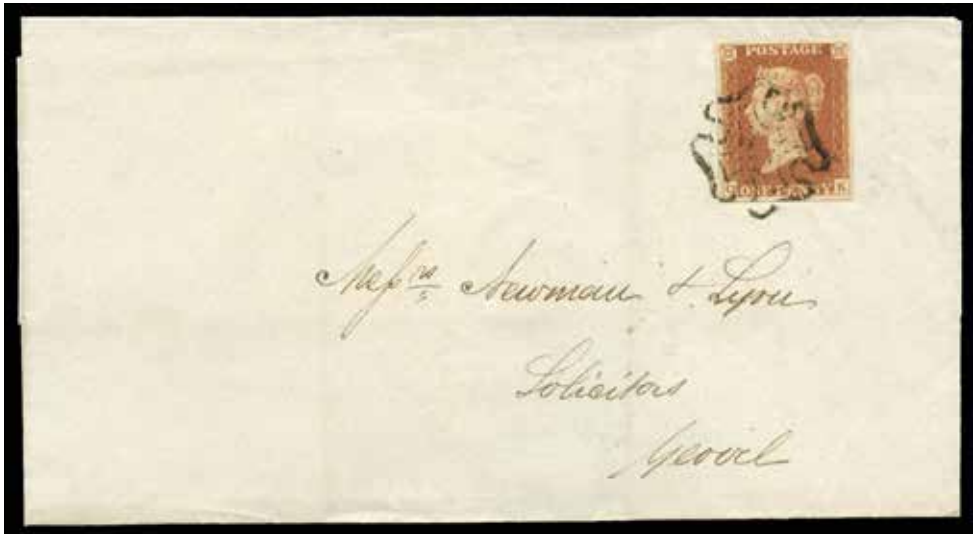 POSTAGE
ONE PENNY K
Messrs Newman & Lyon
Solicitors
Yeovil